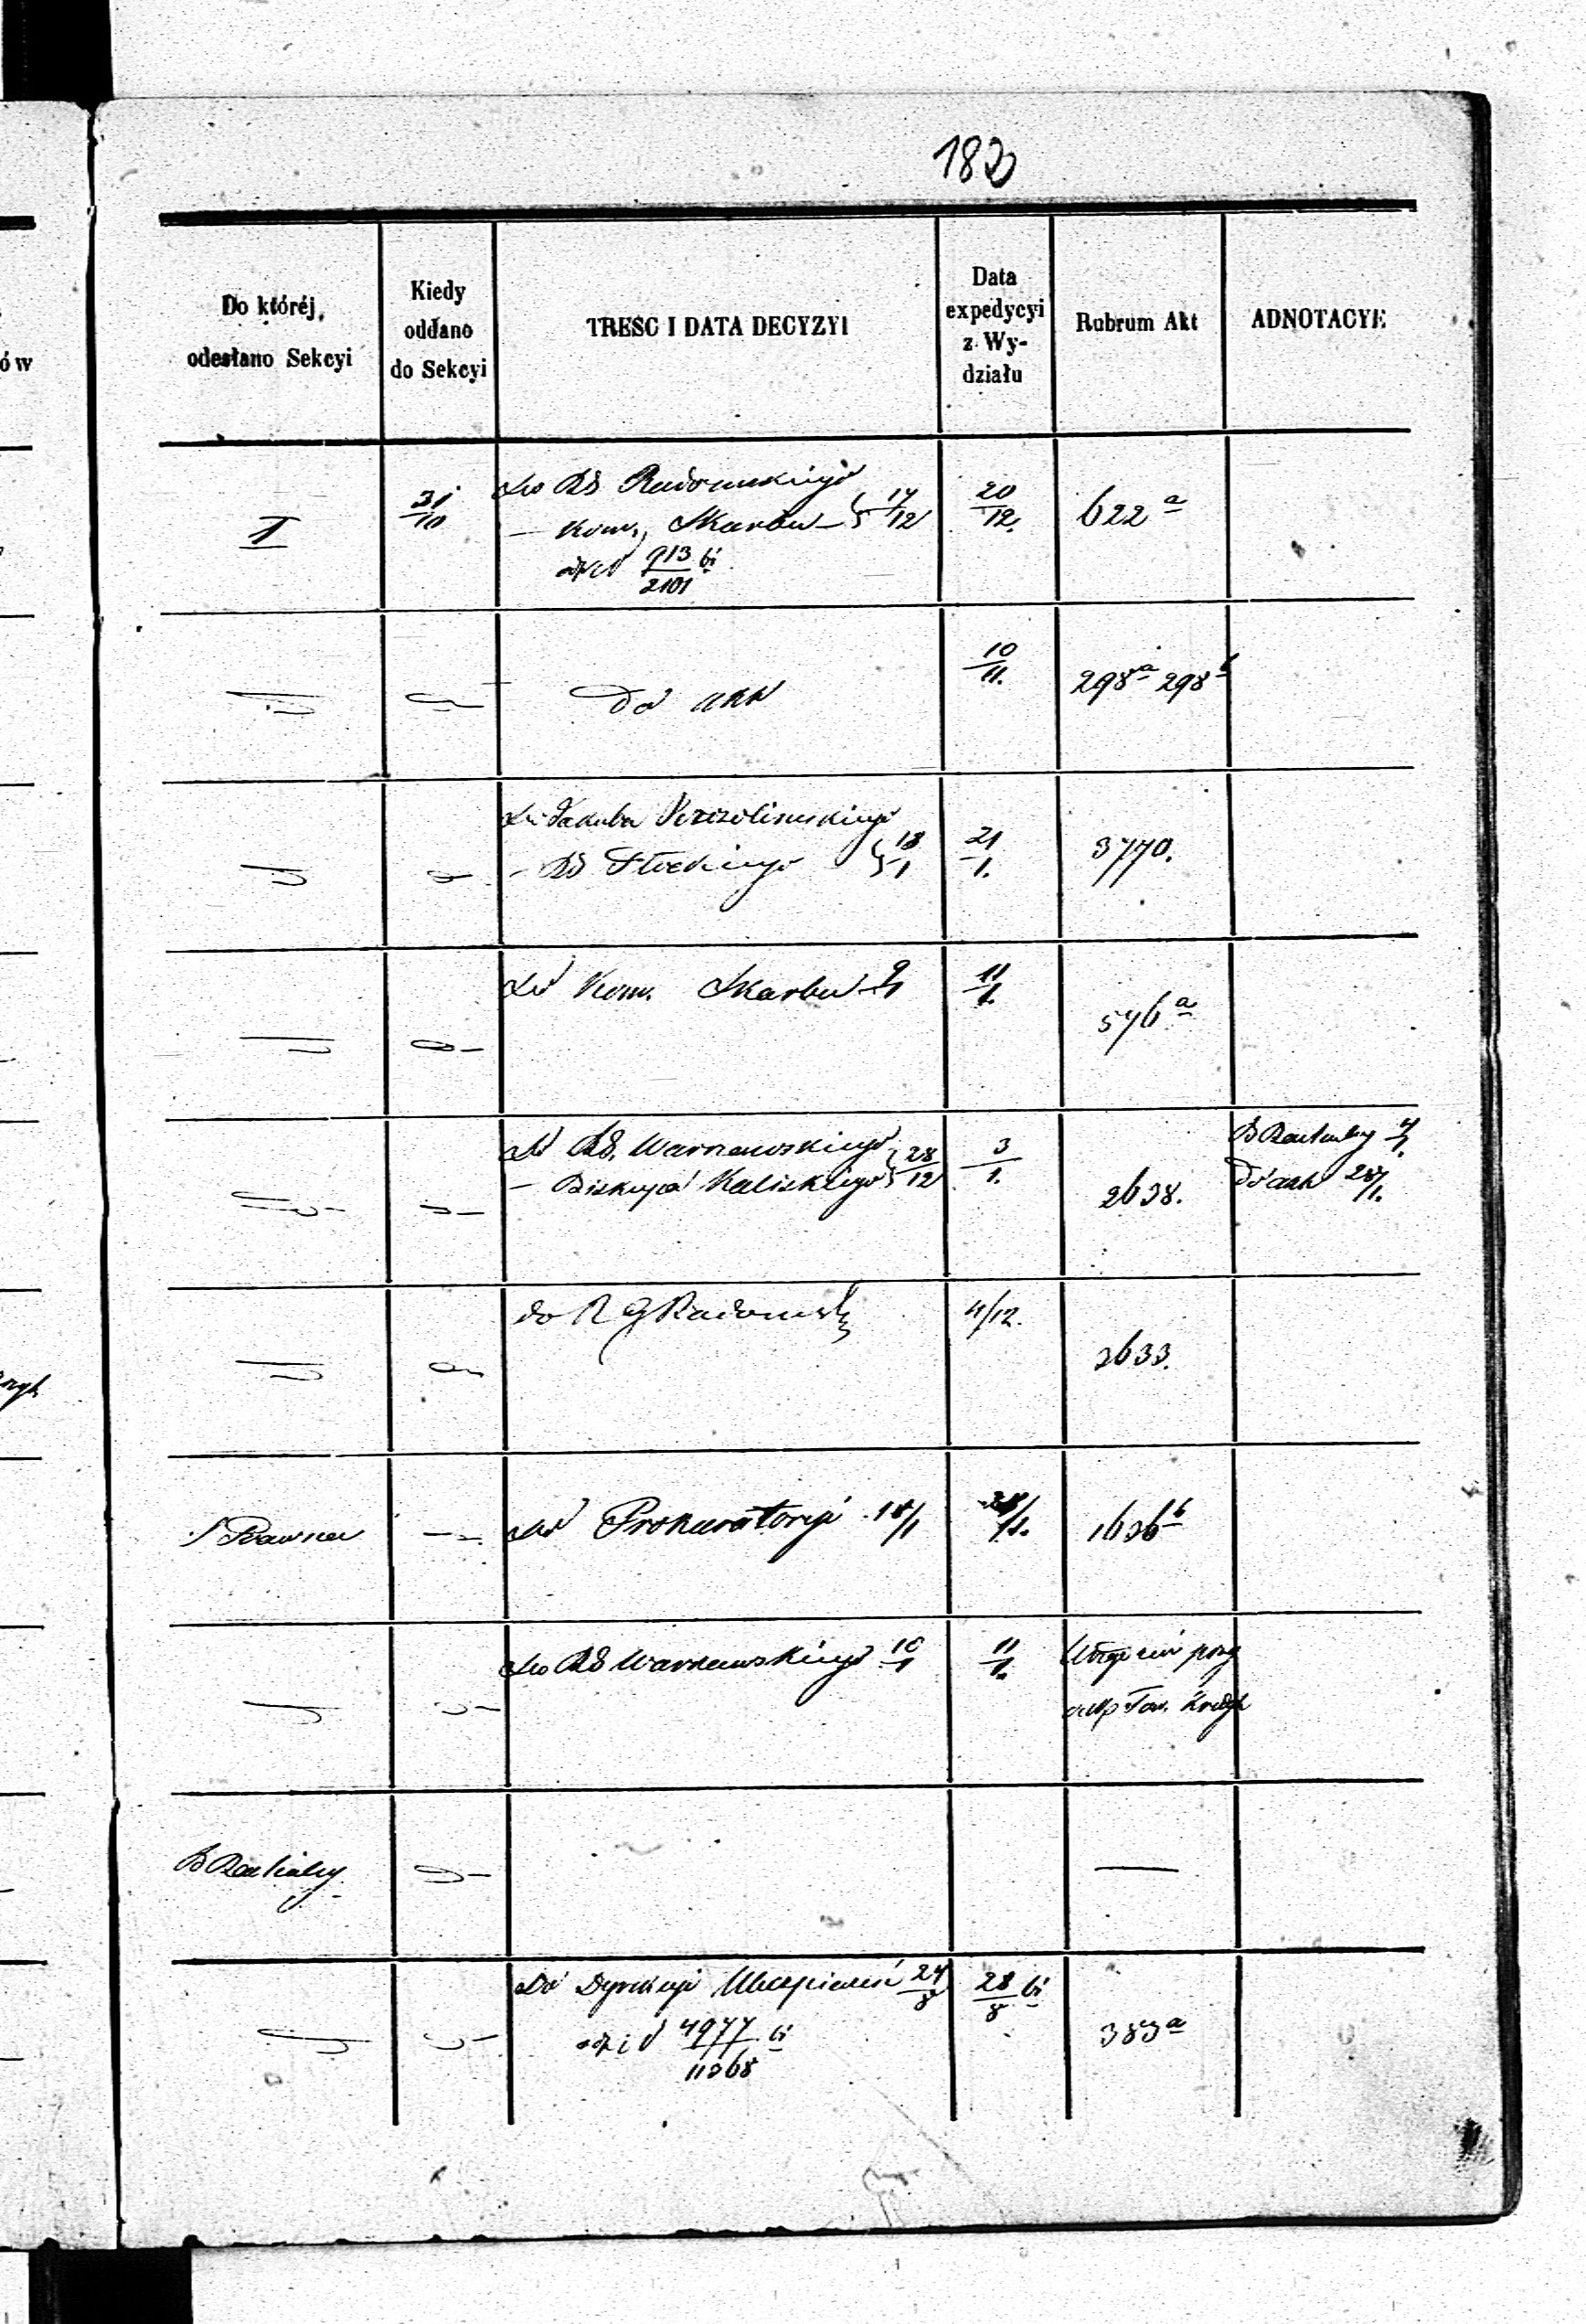 182
Do któréj,
odesłano Sekcyi
Kiedy
oddano
do Sekcyi
TRESC I DATA DECYZYI
Data
expedycyi
z Wy-
działu
Rubrum Akt
ADNOTACYE
I
31/10
do RG Radomskiego
— Kom. Skarbu — } 17/12
913/2101 bi
20/12.
622 a
do akt
10/11.
298 a 298 b
do Jakuba
- RG Płockiego } 18/1
21/1.
3770.
do Kom. Skarbu 9/1
11/1.
576 a
do RG. Warszawskiego
— Biskupa Kaliskiego } 28/12
3/1.
2638.
do akt 28/1.
do R G Radomsk
4/12.
2633.
S Prawna
do Prokuratoryi 18/1
1636 b
do RG Warszawskiego 10/1
11/1.
Tow. Kredyt
—
Do Dyrekcyi Ubezpieczeń 24/8
4977/11268 bi
28/8 bi
383 a